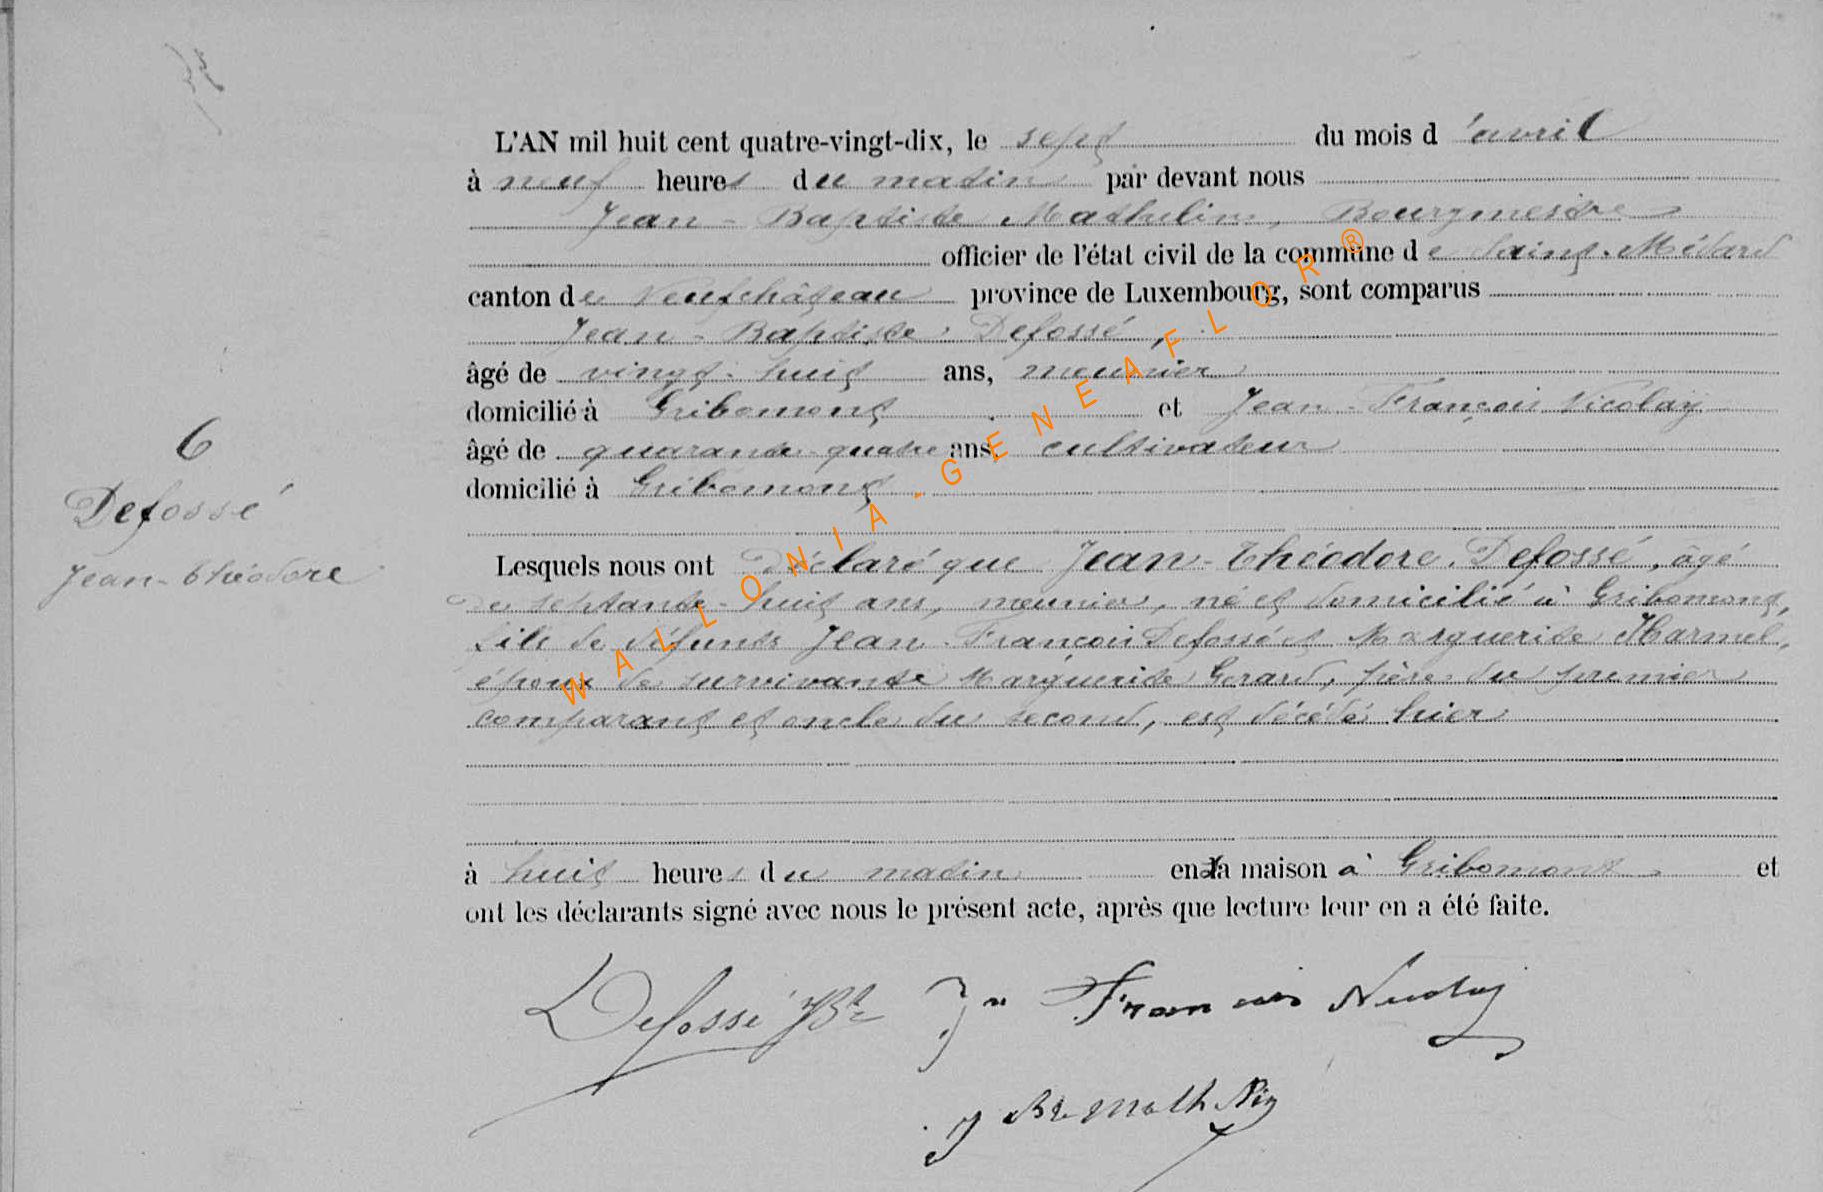 L'AN mil huit cent quatre-vingt-dix, le sept du mois d'avril
à neuf heures du matin par devant nous
Jean-Baptiste Mathelin, Bourgmestre
officier de l'état civil de la commune de Saint-Médard
canton de Neufchâteau province de Luxembourg, sont comparus
Jean-Baptiste Defossé,
âgé de vingt-huit ans, meunier
domicilié à Gribomont et Jean-François Nicolay
âgé de quarante-quatre ans, cultivateur
domicilié à Gribomont
6
Defossé
Jean-Théodore
Lesquels nous ont déclaré que Jean-Théodore Defossé, âgé
de septante-huit ans, meunier, né et domicilié à Gribomont,
fils de défunts Jean-François Defossé et Marguerite Harmel,
époux de survivante Marguerite Gerard, père du premier
comparant et oncle du second, est décédé hier
à huit heures du matin en la maison à Gribomont et
ont les déclarants signé avec nous le présent acte, après que lecture leur en a été faite.
Defossé JBte Jn François Nicolay
J Bte Mathelin
WALLONIA-GENEAFLOR®